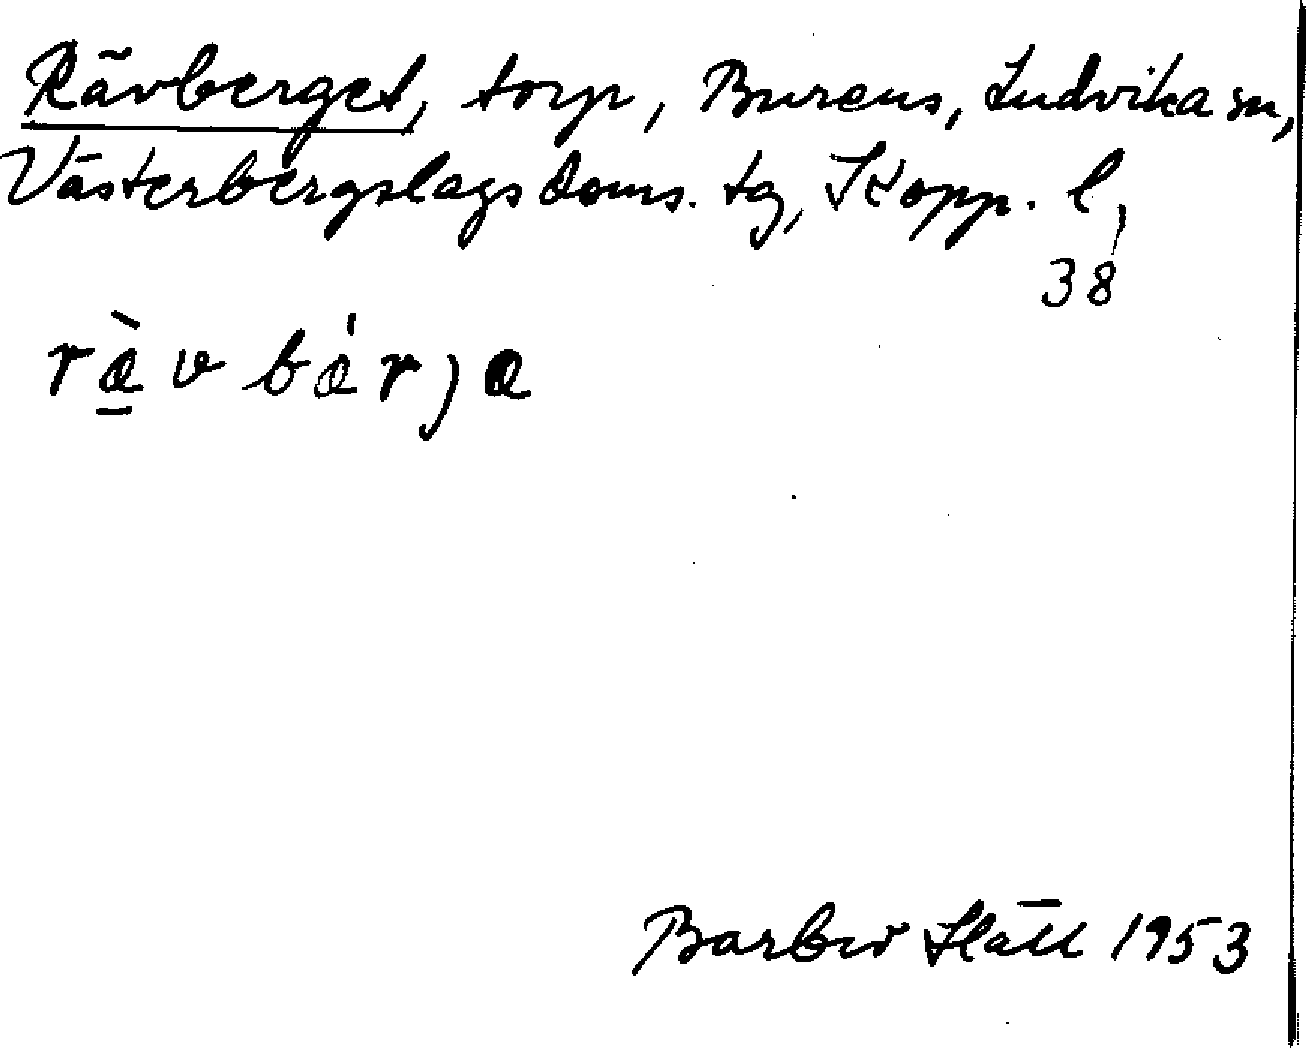 Rävberget, torp, Burens, Ludvika sn,
Västerbergslags doms. tg, Kopp. l,
38
rà̱v bárja
1953